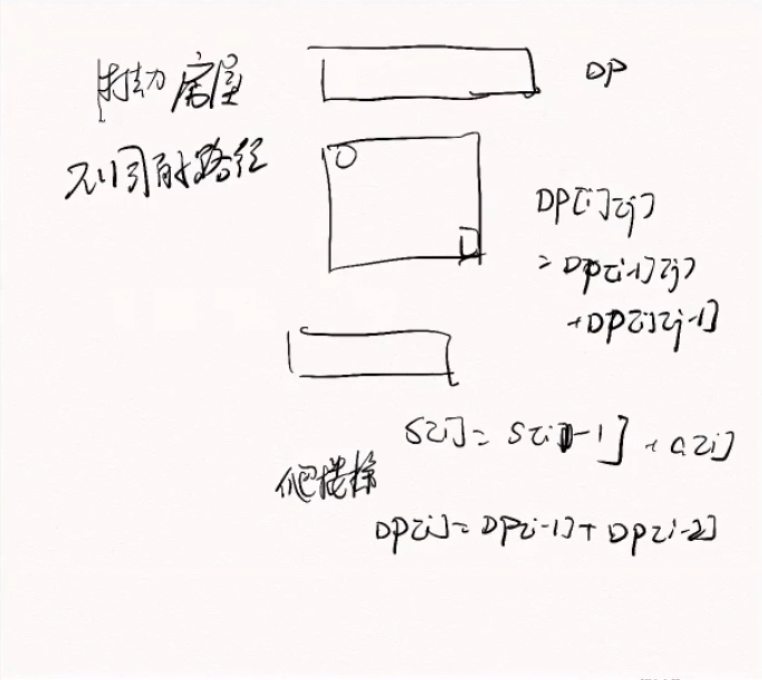 打劫房屋
DP
不同的路径
DP[i][j]
= DP[i-1][j]
+DP[i][j-1]
S[i] = S[i-1] + a[i]
爬楼梯
DP[i] = DP[i-1] + DP[i-2]